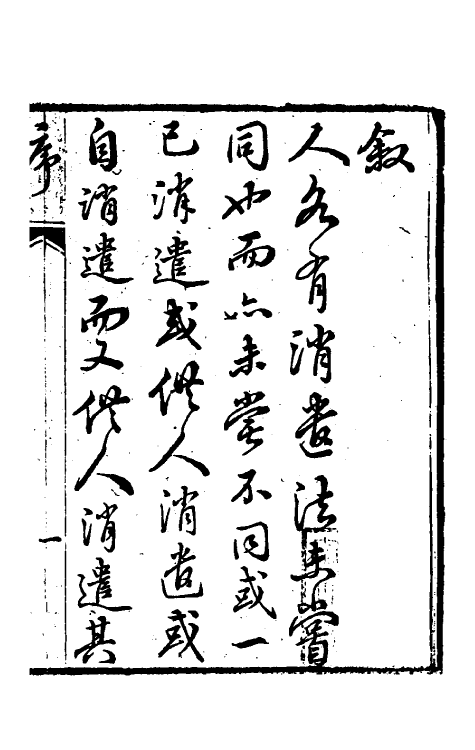 叙
人各有消遣法未嘗
同也而亦未嘗不同或一
已消遣或供人消遣或
自消遣而又供人消遣其
序
一